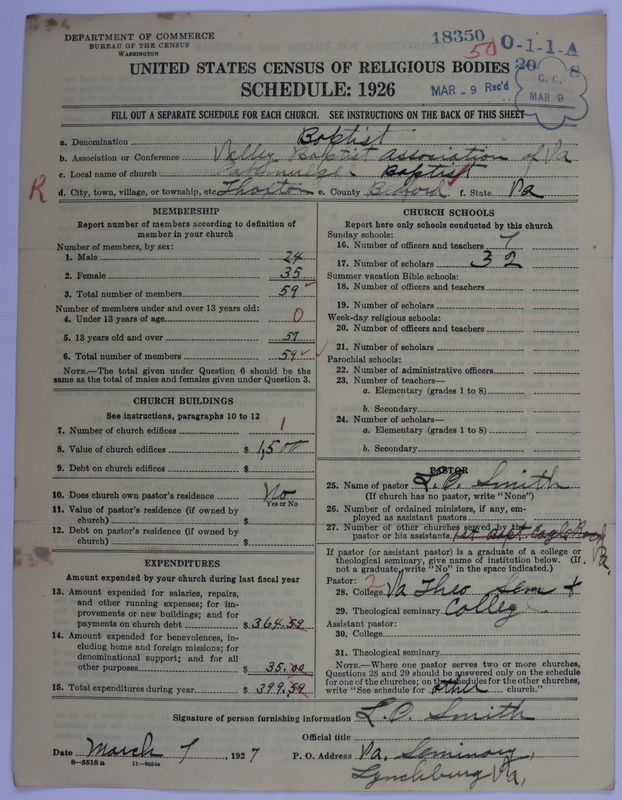 DEPARTMENT OF COMMERCE
BUREAU OF THE CENSUS
WASHINGTON
18350
50
O-1-1-A
20 8
C. C.
MAR 9
MAR - 9 Rec'd
UNITED STATES CENSUS OF RELIGIOUS BODIES
SCHEDULE: 1926
FILL OUT A SEPARATE SCHEDULE FOR EACH CHURCH. SEE INSTRUCTIONS ON THE BACK OF THIS SHEET
a. Denomination Baptist
b. Association or Conference Valley Baptist Association of Va
c. Local name of church Baptist
R
d. City, town, village, or township, etc. Thaxton e. County Bedford f. State Va
MEMBERSHIP
Report number of members according to definition of
member in your church
Number of members, by sex:
1. Male 24
2. Female 35
3. Total number of members 59
Number of members under and over 13 years old:
4. Under 13 years of age 0
5. 13 years old and over 59
6. Total number of members 59
NOTE.—The total given under Question 6 should be the
same as the total of males and females given under Question 3.
CHURCH BUILDINGS
See instructions, paragraphs 10 to 12
7. Number of church edifices 1
8. Value of church edifices $ 1,500
9. Debt on church edifices $
10. Does church own pastor's residence No
Yes or No
11. Value of pastor's residence (if owned by
church) $
12. Debt on pastor's residence (if owned by
church) $
EXPENDITURES
Amount expended by your church during last fiscal year
13. Amount expended for salaries, repairs,
and other running expenses; for im-
provements or new buildings; and for
payments on church debt $ 364.59
14. Amount expended for benevolences, in-
cluding home and foreign missions; for
denominational support; and for all
other purposes $ 35.00
15. Total expenditures during year $ 399.59
CHURCH SCHOOLS
Report here only schools conducted by this church
Sunday schools:
16. Number of officers and teachers 7
17. Number of scholars 32
Summer vacation Bible schools:
18. Number of officers and teachers
19. Number of scholars
Week-day religious schools:
20. Number of officers and teachers
21. Number of scholars
Parochial schools:
22. Number of administrative officers
23. Number of teachers—
a. Elementary (grades 1 to 8)
b. Secondary
24. Number of scholars—
a. Elementary (grades 1 to 8)
b. Secondary
PASTOR
25. Name of pastor L. O. Smith
(If church has no pastor, write "None")
26. Number of ordained ministers, if any, em-
ployed as assistant pastors
27. Number of other churches served by the
pastor or his assistants 1st Bapt. Eagle Rock Va.
If pastor (or assistant pastor) is a graduate of a college or
theological seminary, give name of institution below. (If
not a graduate, write "No" in the space indicated.)
Pastor: 2
28. College Va Theo Sem +
29. Theological seminary College
Assistant pastor:
30. College
31. Theological seminary
NOTE.—Where one pastor serves two or more churches,
Questions 28 and 29 should be answered only on the schedule
for one of the churches; on the schedules for the other churches,
write "See schedule for other church."
Signature of person furnishing information L. O. Smith
Official title
Date March 7, 1927 P. O. Address Va. Seminary,
8—5518 a 11—9054a
Lynchburg Va,